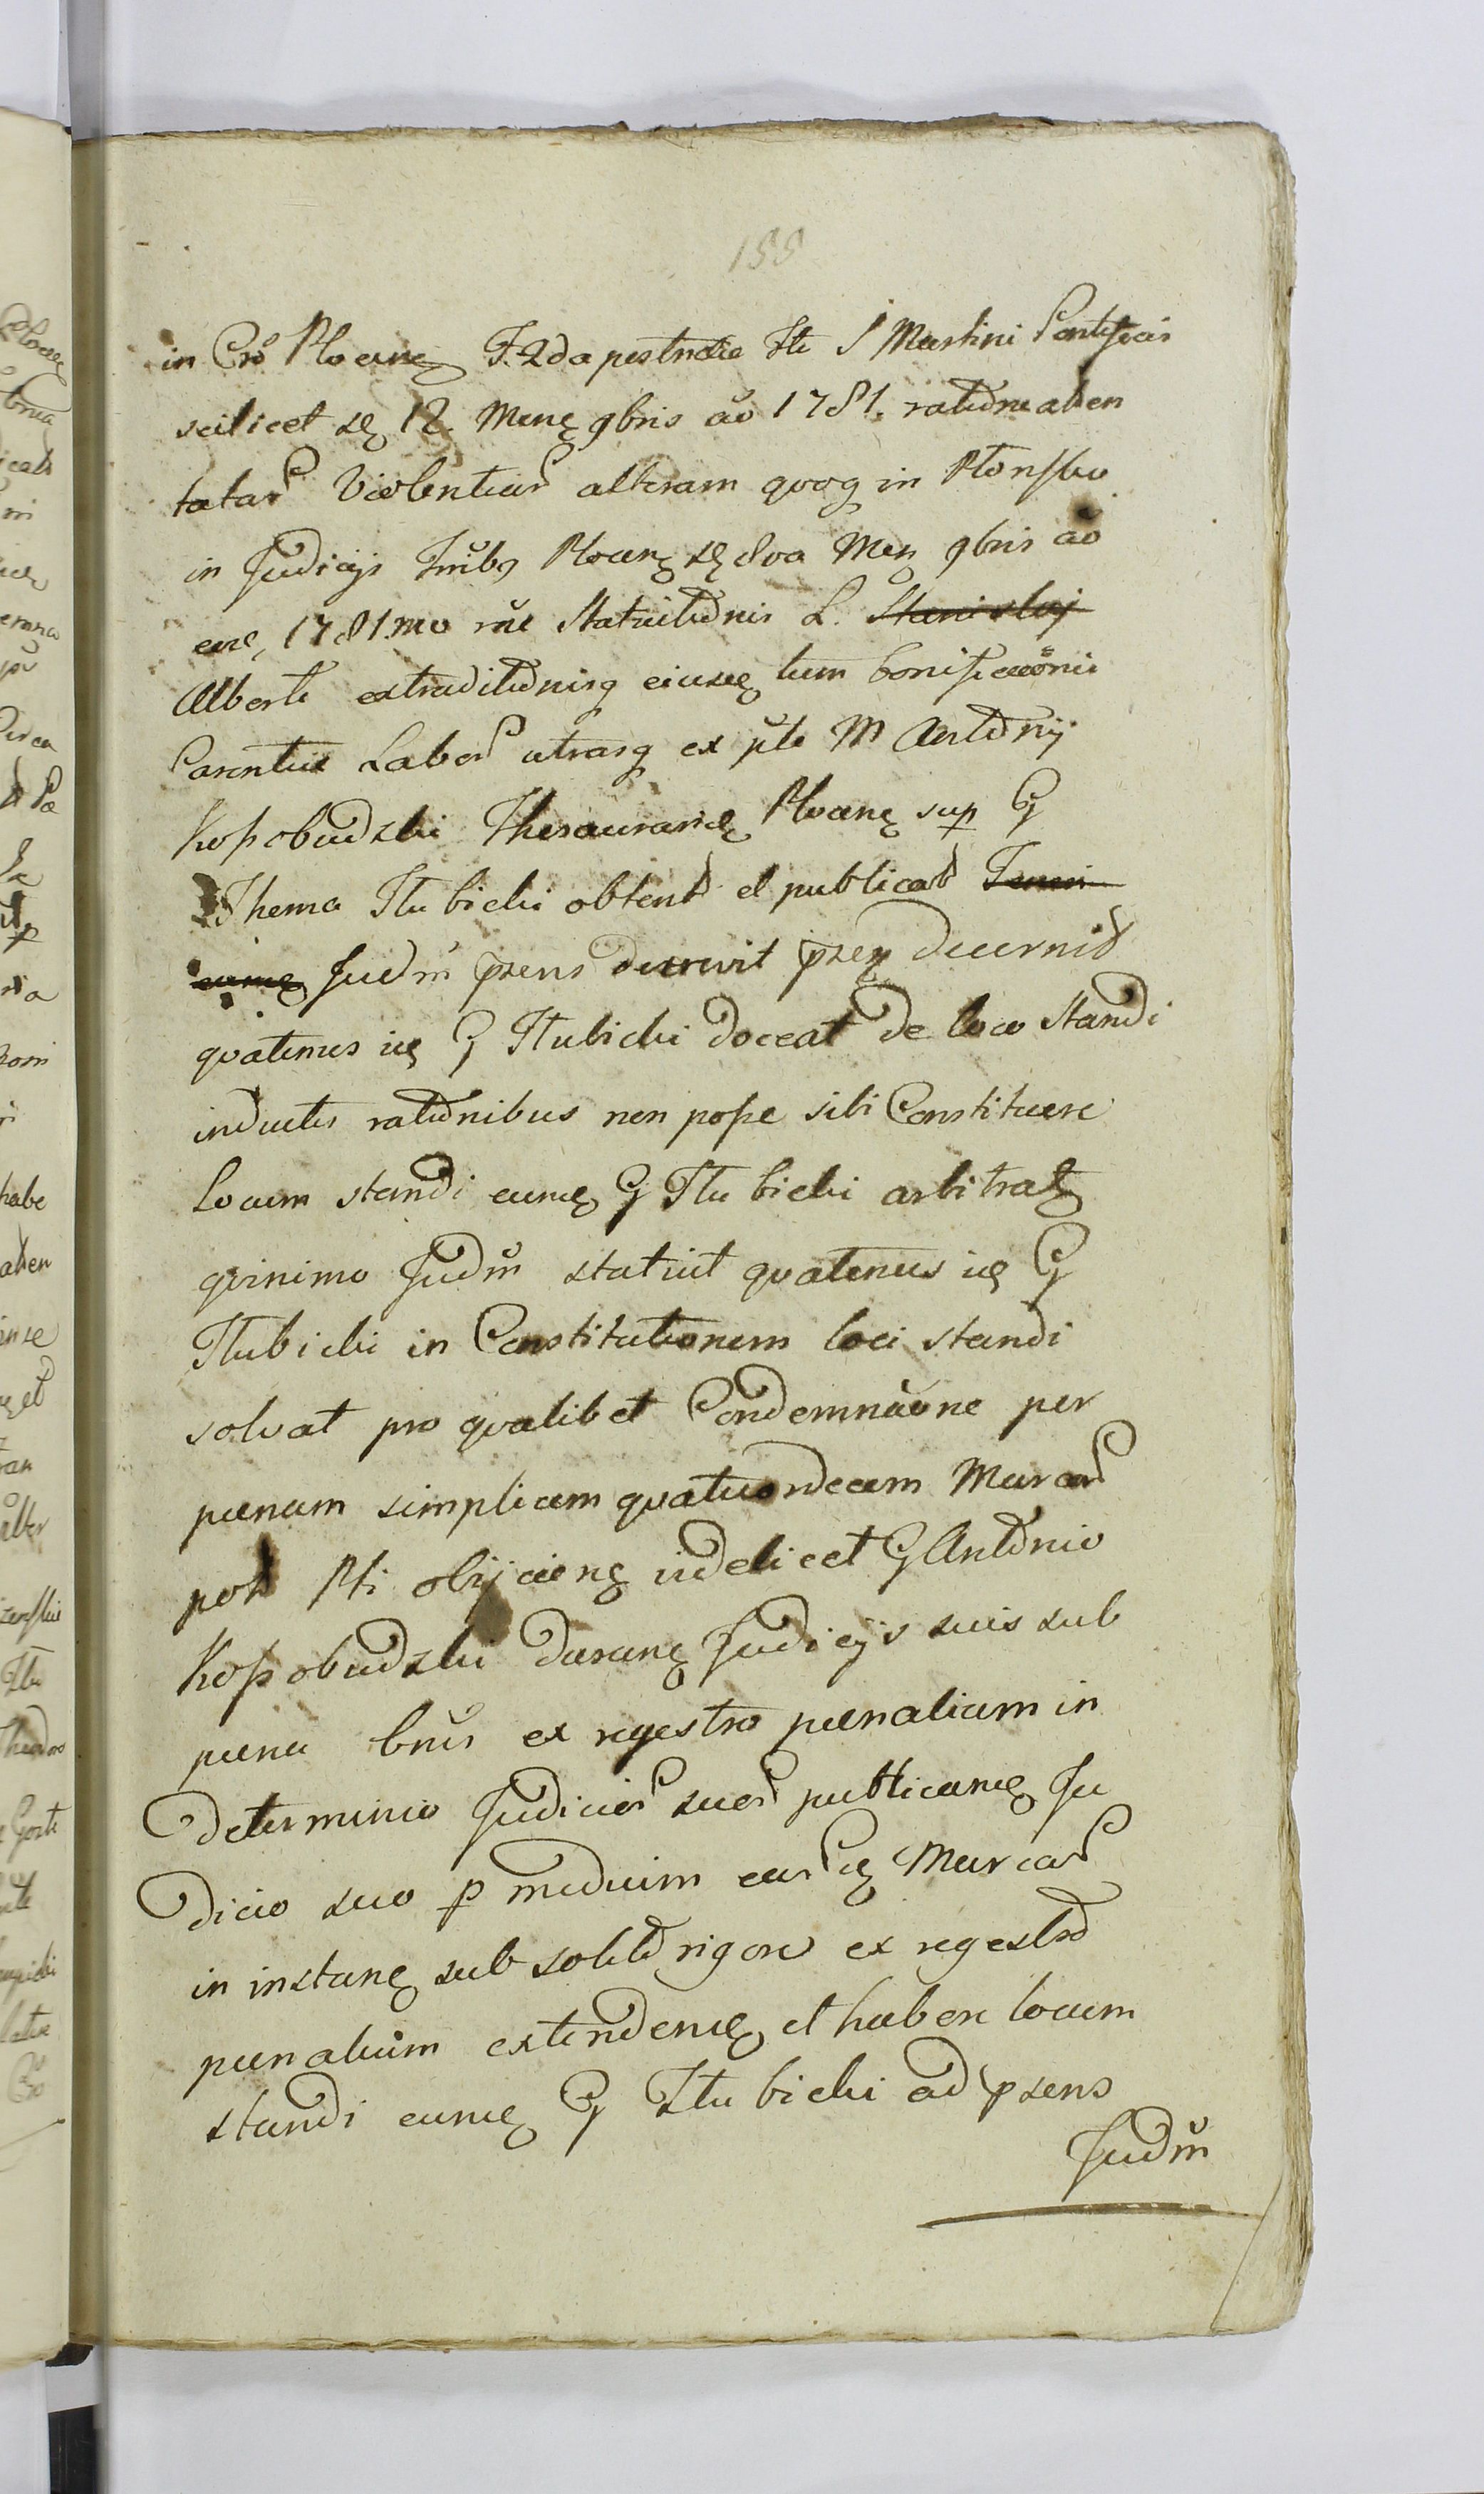 188
in Cro Plocen F. 2da postridie Fti S Martini Pontificis
scilicet die 12 Mens 9bris ao 1781. ratione atten
tatar Violentiar alteram quoq in Płonsko
in Judicijs Trribq Plocen die 8va Men 9bris ao
eod, 1781mo rne Statuitionis L. Stanislaj
Alberti extraditionisq eiusd tum bonificaonis
Carentiae Labor utrasq ex pte M Antonij
Kossobudzki Thesaurarid Plocens sup G
Thoma Ttubicki obtent et publicat Tenen
eumd Judm pzens decrevit pzen decernit
quatenus id G Ttubicki doceat de loco Standi
inductis rationibus non posse sibi Constituere
Locum standi eumd G Ttubicki arbitrat
quinimo Judm statuit quatenus id G
Ttubicki in Constitutionem loci standi
solvat pro qualibet Condemnaone per
paenam simplicem quatuordecem Marcar
pol Pti objicieng videlicet G Antonio
Kossobudzki Darang Judicijs suis sub
paena bnis ex regestro paenalium in
determinio Judicior suor publicand Ju
dicio suo p medium earcd Marcar
in instang sub solito rigore ex regestro
paenalium extendend et habere locum
standi eumd G Ttubicki ad pzens
Judm